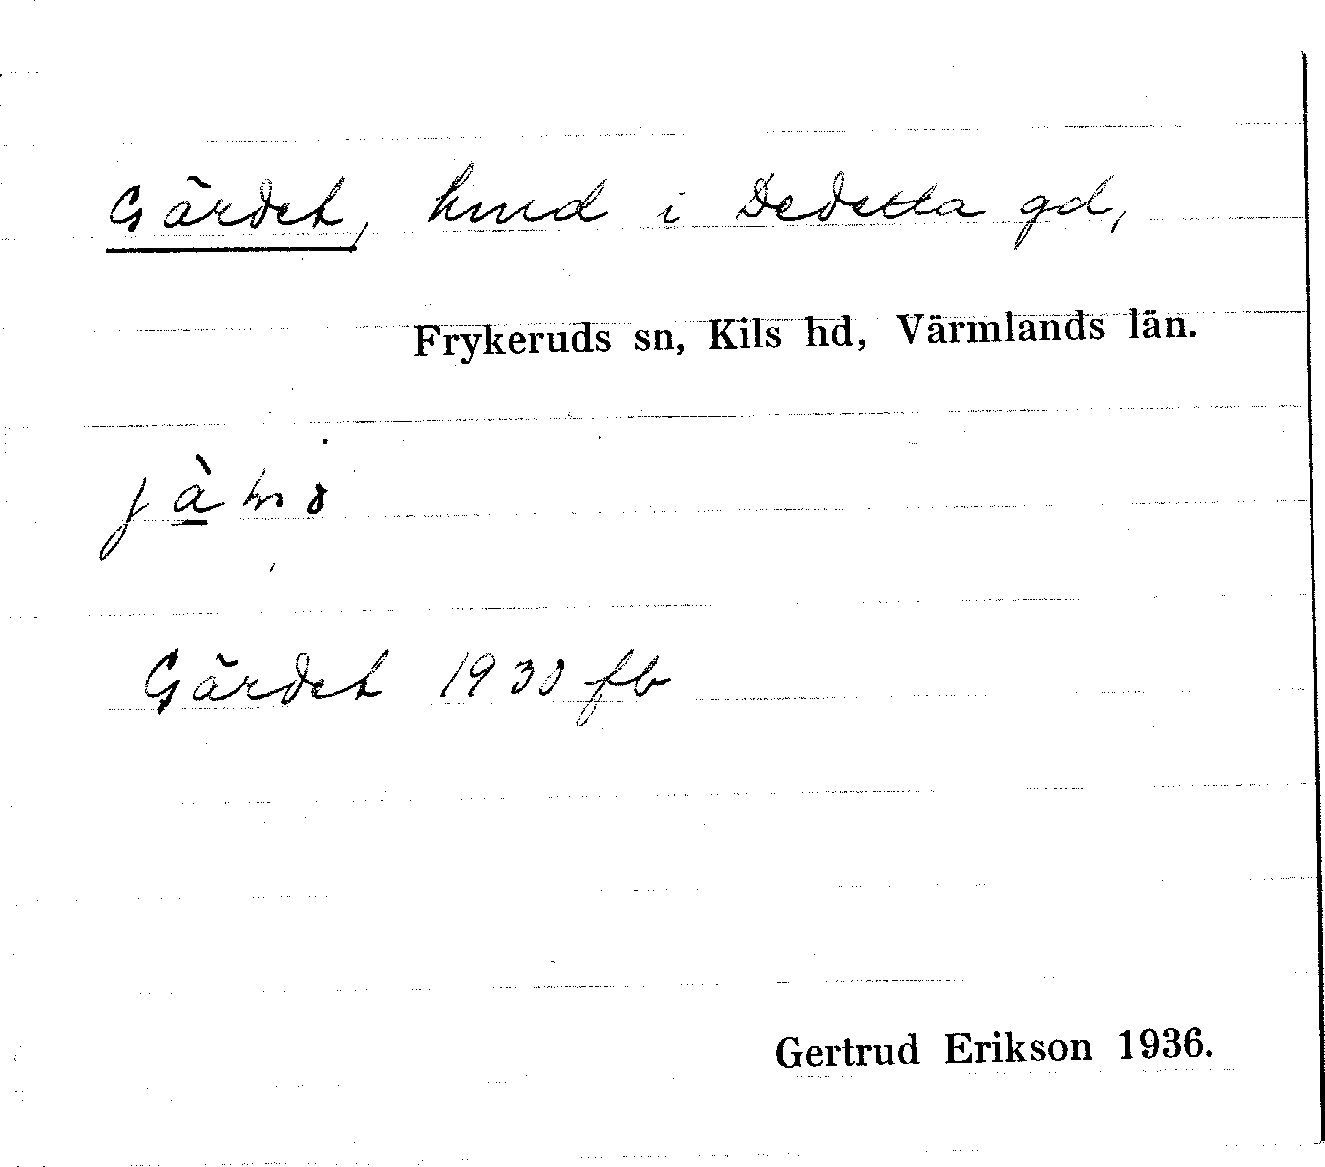 Gärdet, hmd i Dedetta gd,
Frykeruds sn, Kils hd, Värmlands län.
Gärdet 1930 fb
Gertrud Erikson 1936.